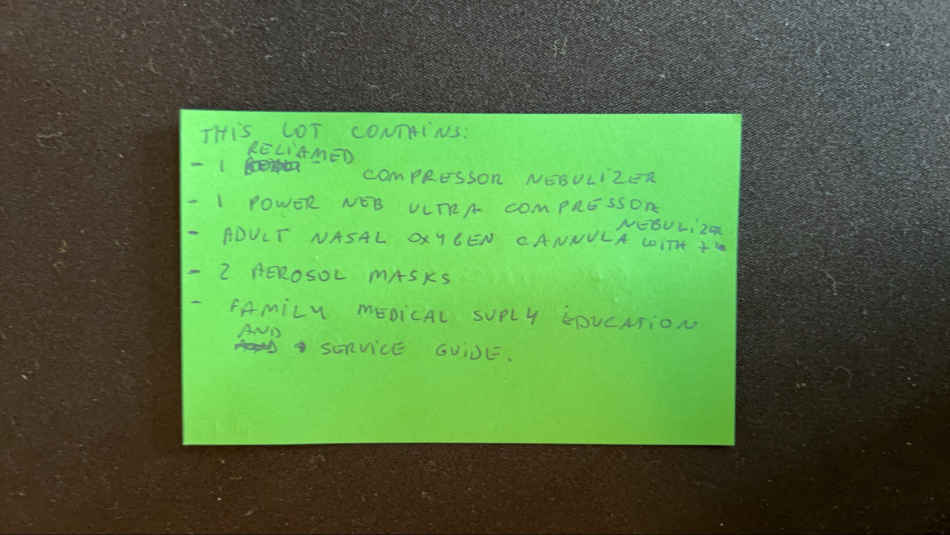 THIS LOT CONTAINS:
- 1 RELIAMED COMPRESSOR NEBULIZER
- 1 POWER NEB ULTRA COMPRESSOR NEBULIZER
- ADULT NASAL OXYGEN CANNULA WITH
- 2 AEROSOL MASKS
- FAMILY MEDICAL SUPLY EDUCATION
AND SERVICE GUIDE.